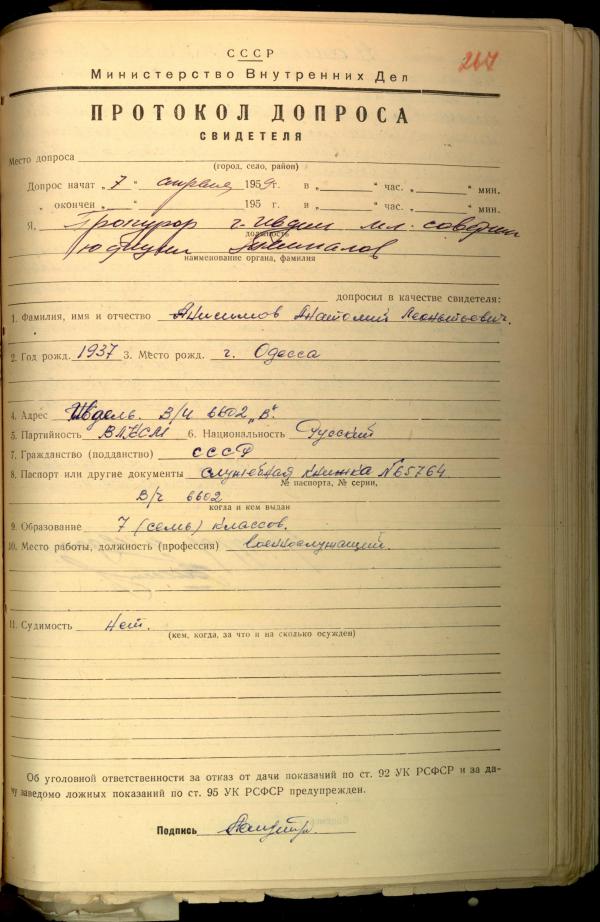 267
СССР
Министерство Внутренних Дел
ПРОТОКОЛ ДОПРОСА
СВИДЕТЕЛЯ
Место допроса
(город, село, район)
Допрос начат „ 7 “ апреля 1959 г. в „ “ час. „ “ мин.
„ окончен „ “ 195 г. в „ “ час. „ “ мин.
Я, Прокурор г. Ивдель мл. советник
должность
юстиции Темпалов
наименование органа, фамилия
допросил в качестве свидетеля:
1. Фамилия, имя и отчество Анисимов Анатолий Леонтьевич.
2. Год рожд. 1937 3. Место рожд. г. Одесса
4. Адрес Ивдель. В/ч 6602 „В“.
5. Партийность ВЛКСМ 6. Национальность Русский
7. Гражданство (подданство) СССР
8. Паспорт или другие документы служебная книжка №65764
№ паспорта, № серии,
В/ч 6602
когда и кем выдан
9. Образование 7 (семь) классов.
10. Место работы, должность (профессия) военнослужащий.
11. Судимость нет.
(кем, когда, за что и на сколько осужден)
Об уголовной ответственности за отказ от дачи показаний по ст. 92 УК РСФСР и за да-
чу заведомо ложных показаний по ст. 95 УК РСФСР предупрежден.
Подпись